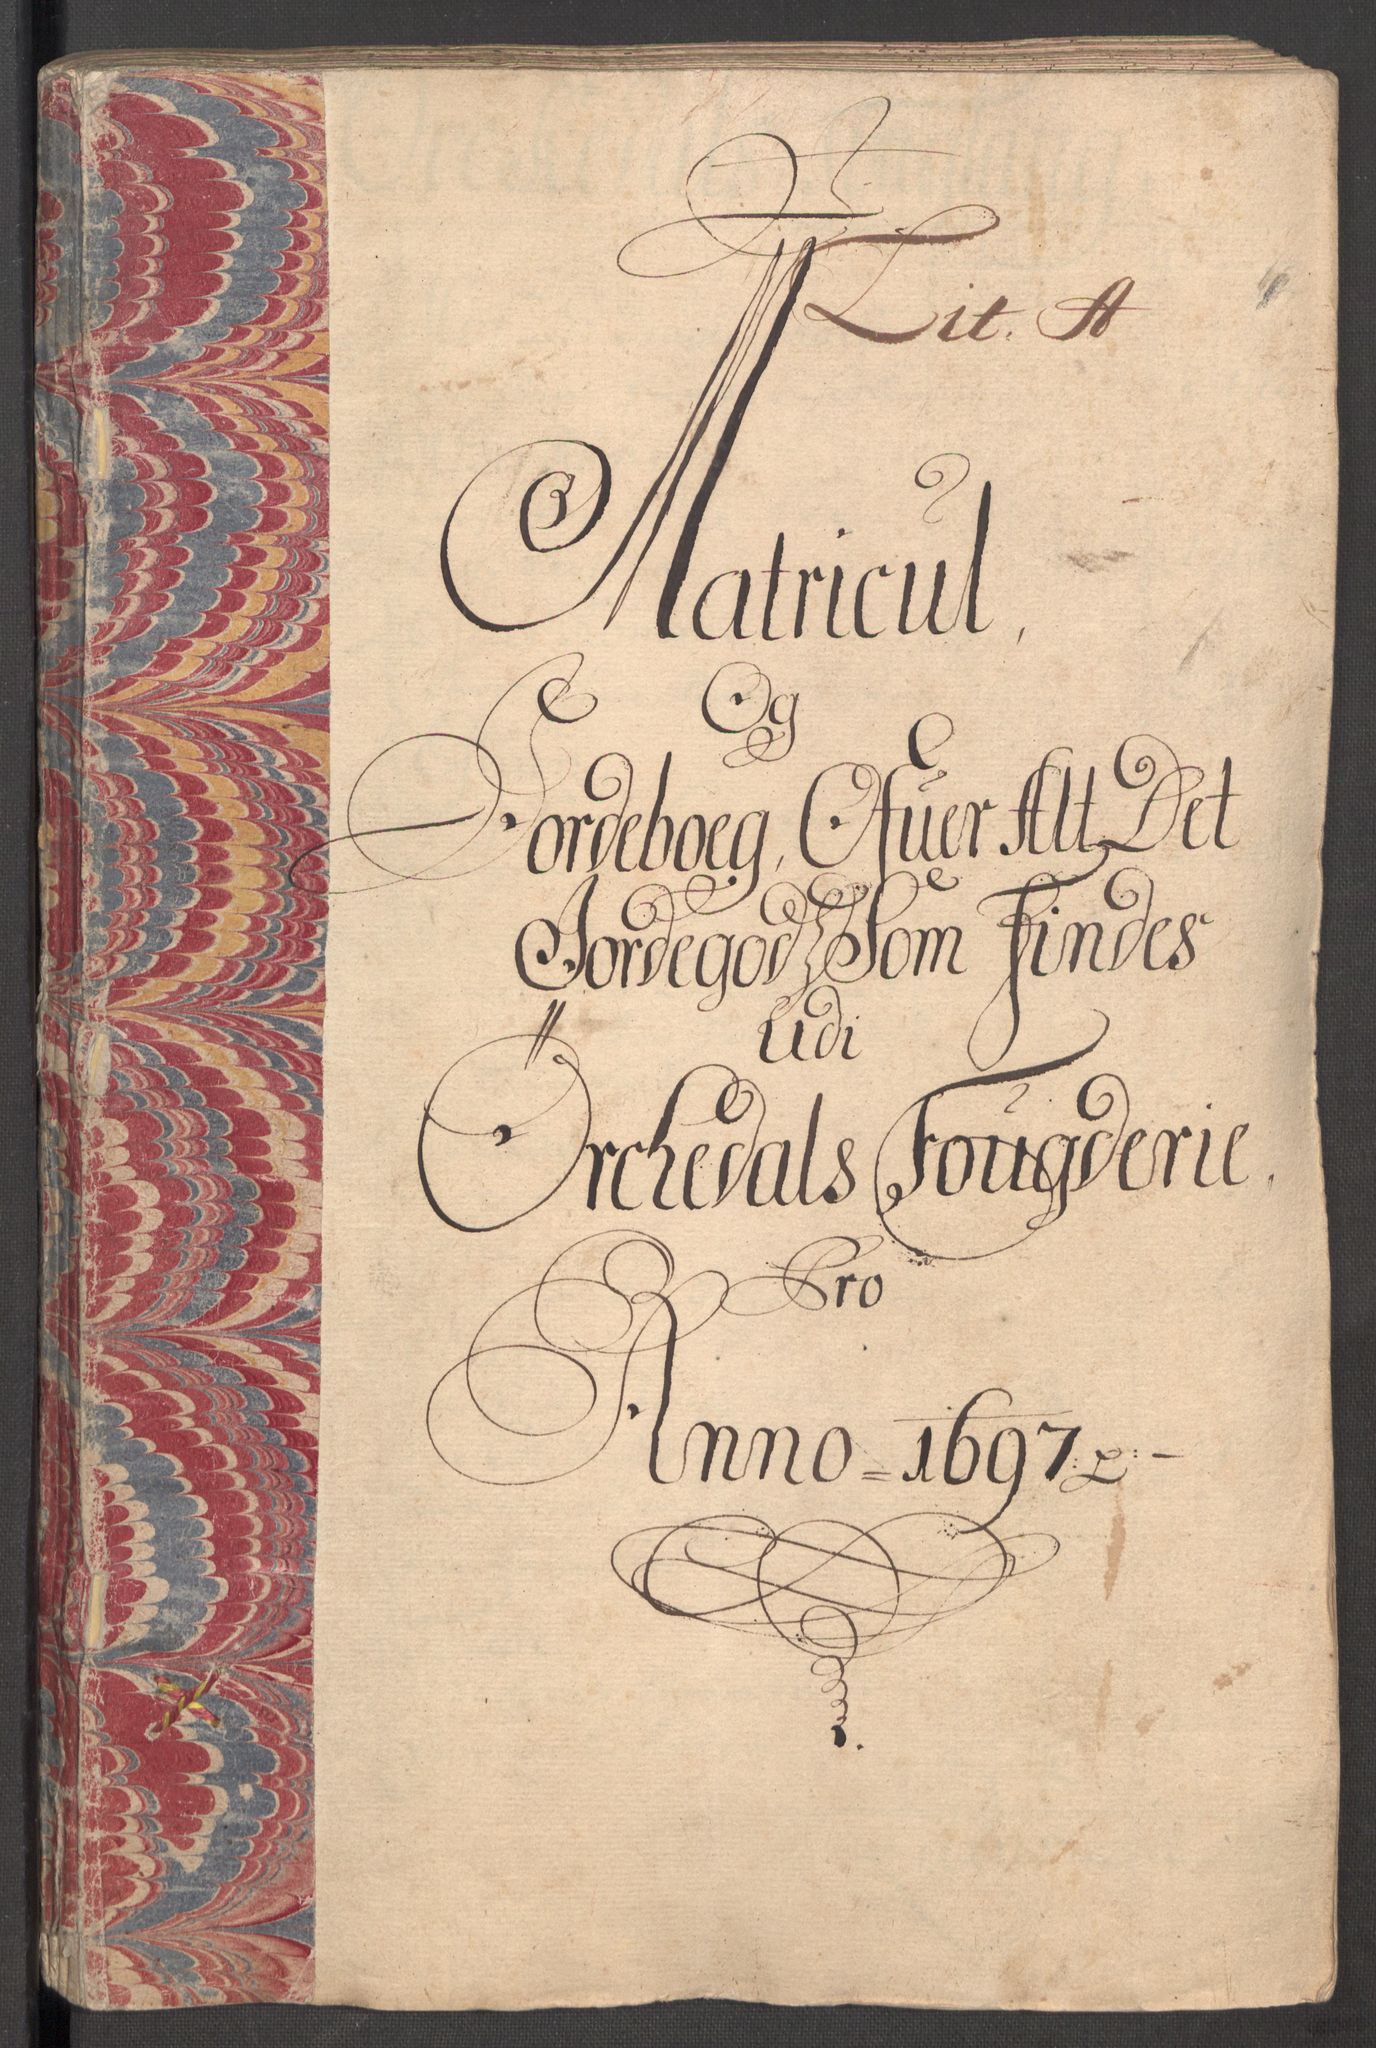 Lit. A
Matricul,
Og
Jordeboeg, Ofuer Alt Det
Jordegodz Som Findes
udi
Orchedals Fougderie.
Pro
Anno = 1697